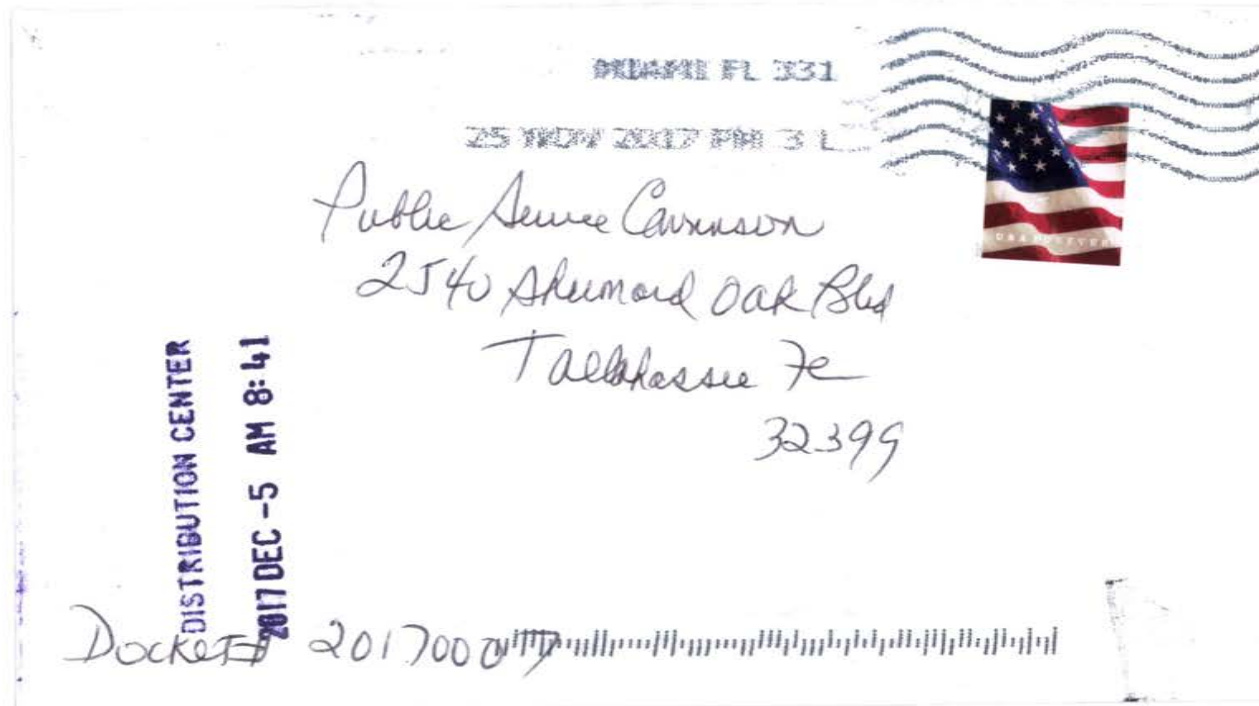 MIAMI FL 331
25 NOV 2017 PM 3 L
USA FOREVER
Public Service Commission
2540 Shumard Oak Blvd
Tallahassee Fl
32399
DISTRIBUTION CENTER
2017 DEC -5 AM 8:41
Docket# 2017000